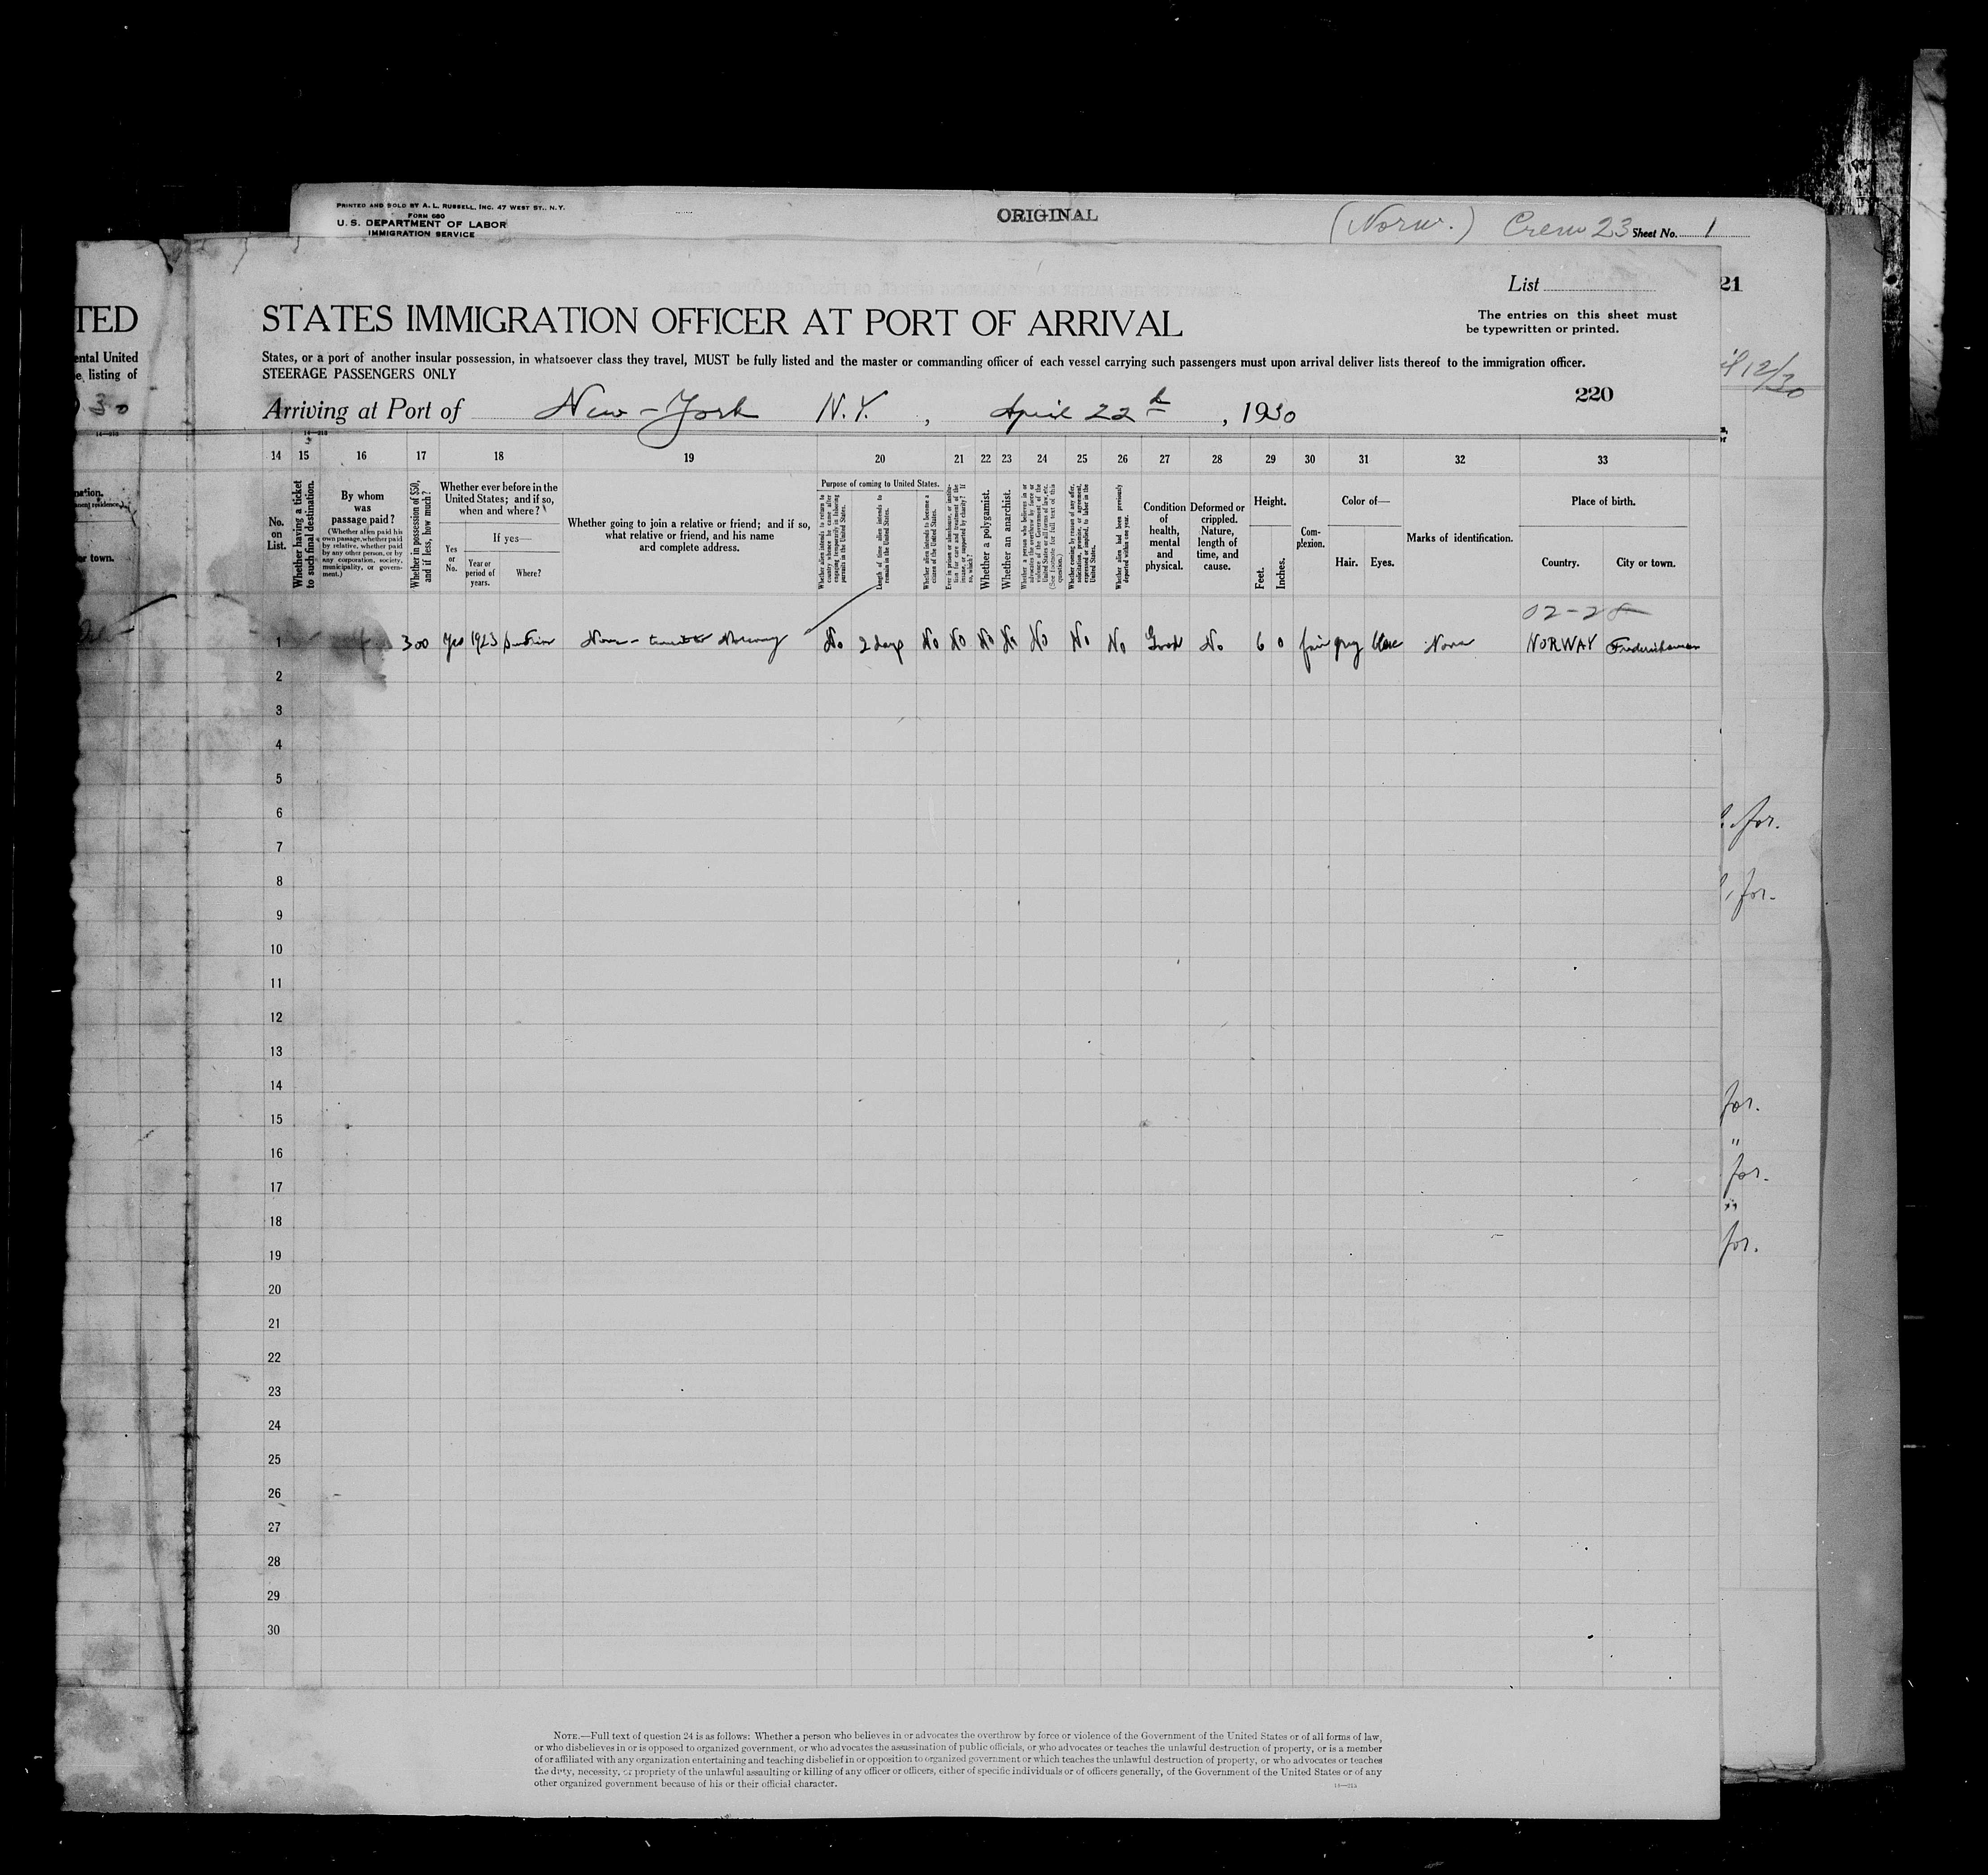 PRINTED AND SOLD BY A. L. RUSSELL, INC. 47 WEST ST., N.Y.
FORM 680
U. S. DEPARTMENT OF LABOR
IMMIGRATION SERVICE
ORIGINAL
(Norw.) Crew 23 Sheet No. 1
List
21
TED
STATES IMMIGRATION OFFICER AT PORT OF ARRIVAL
The entries on this sheet must
be typewritten or printed.
ental United
e listing of
States, or a port of another insular possession, in whatsoever class they travel, MUST be fully listed and the master or commanding officer of each vessel carrying such passengers must upon arrival deliver lists thereof to the immigration officer.
STEERAGE PASSENGERS ONLY
il 12/30
30
Arriving at Port of New-York N.Y., April 22th, 1930
220
14 15 16 17 18 19 20 21 22 23 24 25 26 27 28 29 30 31 32 33
No. on List.
Whether having a ticket to such final destination.
By whom was passage paid?
(Whether alien paid his own passage, whether paid by relative, whether paid by any other person, or by any corporation, society, municipality, or government.)
Whether in possession of $50, and if less, how much?
Whether ever before in the United States; and if so, when and where?
If yes—
Yes or No.
Year or period of years.
Where?
Whether going to join a relative or friend; and if so, what relative or friend, and his name and complete address.
Purpose of coming to United States.
Whether alien intends to return to country whence he came after engaging temporarily in laboring pursuits in the United States.
Length of time alien intends to remain in the United States.
Whether alien intends to become a citizen of the United States.
Ever in prison or almshouse, or institution for care and treatment of the insane, or supported by charity? If so, which?
Whether a polygamist.
Whether an anarchist.
Whether a person who believes in or advocates the overthrow by force or violence of the Government of the United States or all forms of law, etc. (See footnote for full text of this question.)
Whether coming by reason of any offer, solicitation, promise, or agreement, expressed or implied, to labor in the United States.
Whether alien had been previously deported within one year.
Condition of health, mental and physical.
Deformed or crippled. Nature, length of time, and cause.
Height.
Feet.
Inches.
Complexion.
Color of—
Hair.
Eyes.
Marks of identification.
Place of birth.
Country.
City or town.
02-28
1 300 Yes 1923 None - Norway No 2 days No No No No No No No Good No 6 0 fair grey blue None NORWAY
2
3
4
5
6
7
8
9
10
11
12
13
14
15
16
17
18
19
20
21
22
23
24
25
26
27
28
29
30
for.
for.
for.
"
for.
"
for.
NOTE.—Full text of question 24 is as follows: Whether a person who believes in or advocates the overthrow by force or violence of the Government of the United States or of all forms of law,
or who disbelieves in or is opposed to organized government, or who advocates the assassination of public officials, or who advocates or teaches the unlawful destruction of property, or is a member
of or affiliated with any organization entertaining and teaching disbelief in or opposition to organized government or which teaches the unlawful destruction of property, or who advocates or teaches
the duty, necessity, or propriety of the unlawful assaulting or killing of any officer or officers, either of specific individuals or of officers generally, of the Government of the United States or of any
other organized government because of his or their official character.